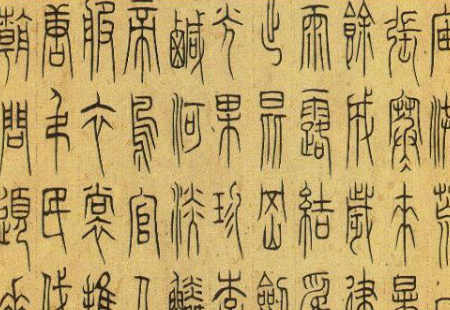 宙洪荒
張寒來暑
餘成歲律
雨露結為
出崑岡劍
光果珍李
鹹河淡鱗
帝鳥官人
服衣裳推
唐弔民伐
朝問道垂